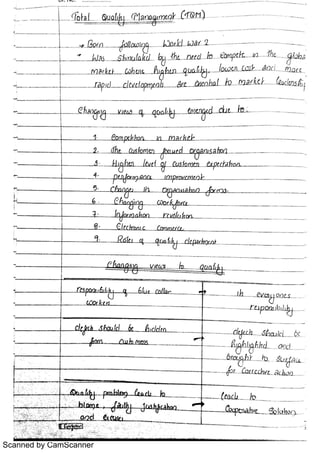 Total Quality Management (TQM)
→ Born following World War 2
* Was Stimulated by the need to Compete in the global
market where higher quality, lower cost and more
rapid development are essential to market leadership
Changing views of quality emerged due to:
1. Competition in market
2. The customer focused organisation
3. Higher level of customer expectation
4. performance improvement
5. Changes in organisation forms
6. Changing workforce
7. Information revolution
8. Electronic Commerce
9. Role of quality department
Changing views to quality
responsibility of blue collar → is everyones
workers responsibility
defects should be hidden → defects should be
from customers highlighted and
brought to surface
for corrective action
Quality problems leads to → leads to
blame, faulty justification Cooperative Solution
and
Scanned by CamScanner